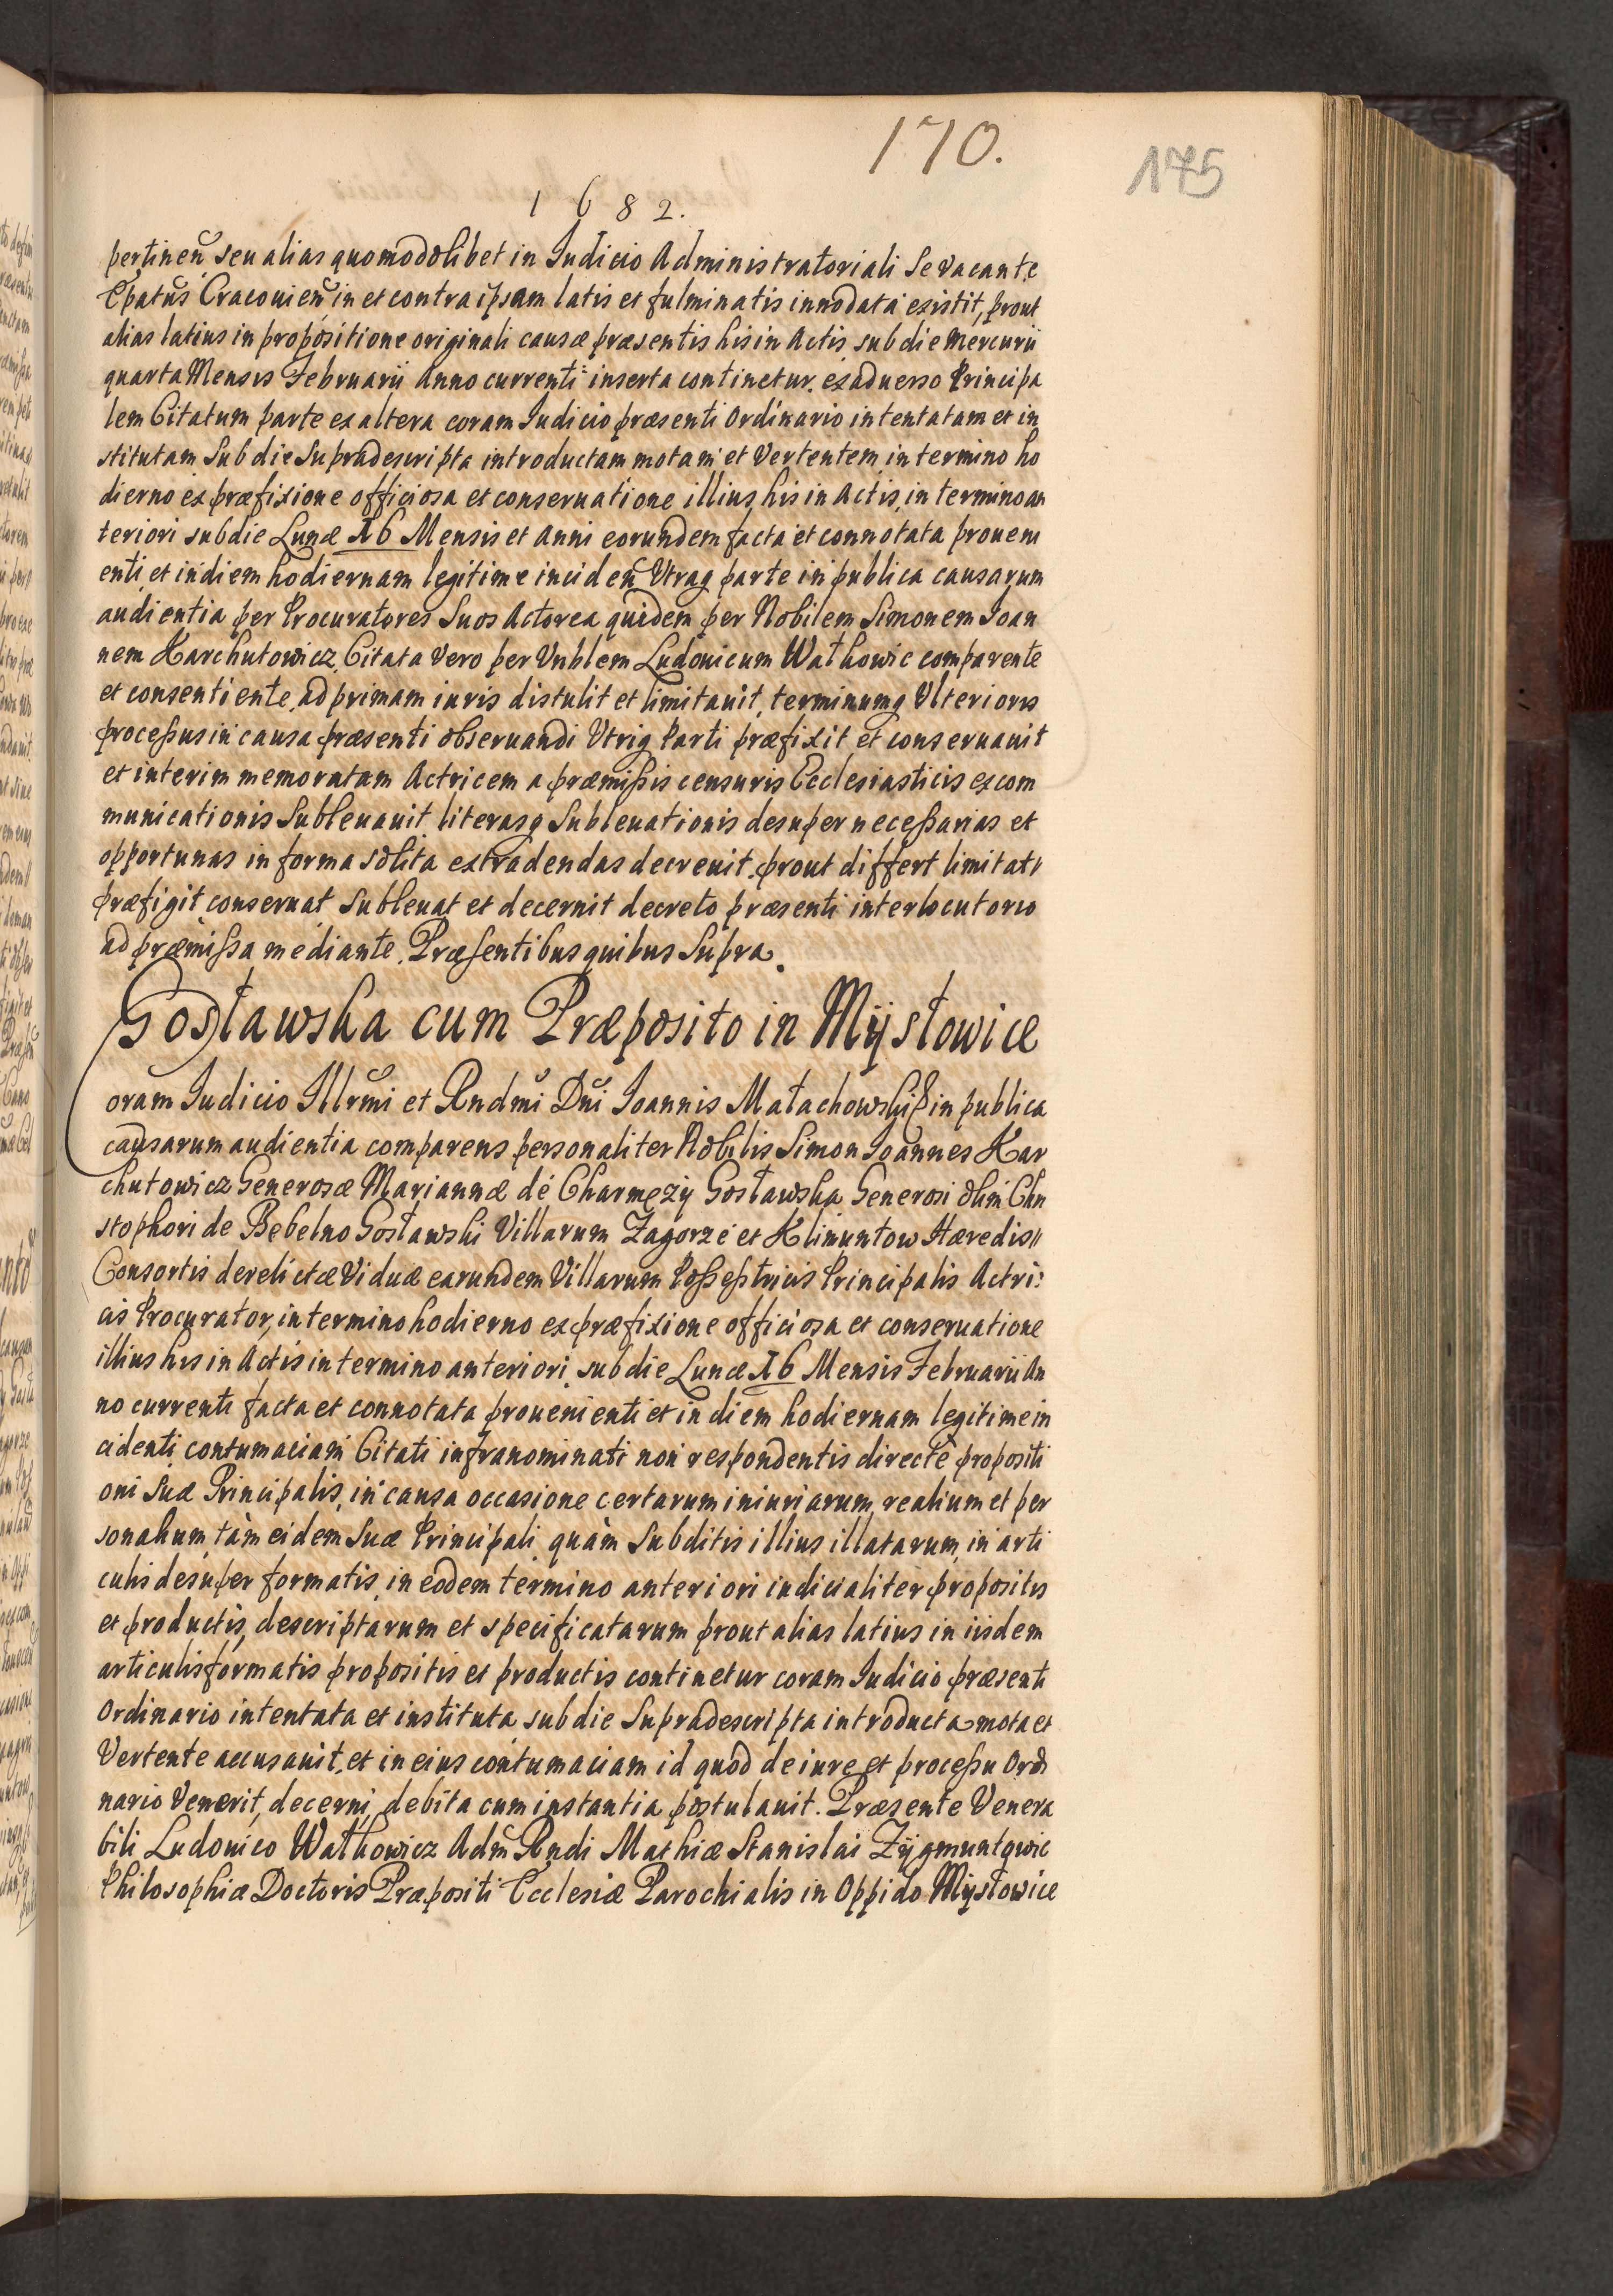 170.
175
1682.
pertineñ seu alias quomodolibet in Iudicio Administratoriali Se vacante
Epatus Cracouien̄ in et contra ipsam latis et fulminatis innodata existit, prout
alias latius in propositione originali causæ præsentis his in Actis sub die Mercurii
quarta Mensis Februarii Anno currenti inserta continetur. ex aduerso Principa
lem Citatum parte ex altera coram Iudicio præsenti Ordinario intentatam et in
stitutam Sub die Supradescripta introductam motam et Vertentem in termino ho
dierno ex præfixione officiosa et conseruatione illius his in Actis, in termino an
teriori sub die Lunæ 16 Mensis et Anni eorundem facta et connotata proueni
enti et in diem hodiernam legitime inciden̄ Vtraq parte in publica causarum
audientia per Procuratores Suos Actorea quidem per Nobilem Simonem Ioan
nem Karchutowicz Citata vero per Vnblem Ludouicum Watkowic comparente
et consentiente, ad primam iuris distulit et limitauit, terminumq Vlterioris
processus in causa præsenti obseruandi Vtriq Parti præfixit et conseruauit
et interim memoratam Actricem a præmissis censuris Ecclesiasticis excom
municationis Subleuauit literasq Subleuationis desuper necessarias et
opportunas in forma solita extradendas decreuit. prout differt limitat
præfigit conseruat subleuat et decernit decreto præsenti interlocutorio
ad præmissa mediante. Præsentibus quibus Supra.
Gosławska cum Præposito in Mÿsłowice
Coram Iudicio Illrmi et Rndmi Dni Ioannis Małachowski & in publica
causarum audientia comparens personaliter Nobilis Simon Ioannes Kar
chutowicz Generosæ Mariannæ de Charmęzÿ Gosławska Generosi olim Chri
stophori de Bebelno Gosławski Villarum Zagorze et Klimuntow Hæredis
Consortis derelictæ Viduæ earundem Villarum Possestricis Principalis Actri:
cis Procurator, in termino hodierno ex præfixione officiosa et conseruatione
illius his in Actis in termino anteriori sub die Lunæ 16 Mensis Februarii An
no currenti facta et connotata prouenienti et in diem hodiernam legitime in
cidenti contumaciam Citati infranominati non respondentis directè propositi
oni Suæ Principalis, in causa occasione certarum iniuriarum, realium et per
sonalium, tàm eidem Suæ Principali quàm Subditis illius illatarum, in arti
culis desuper formatis, in eodem termino anteriori iudicialiter propositis
et productis, descriptarum et specificatarum prout alias latius in iisdem
articulis formatis propositis et productis continetur coram Iudicio præsenti
Ordinario intentata et instituta sub die Supradescripta introducta mota et
Vertente accusauit, et in eius contumaciam id quod de iure et processu Ordi
nario Venerit, decerni, debita cum instantia postulauit. Præsente Venera
bili Ludouico Watkowicz Adm̄ Rndi Mathiæ Stanislai Zÿgmuntowic
Philosophiæ Doctoris Præpositi Ecclesiæ Parochialis in Oppido Mÿsłowice